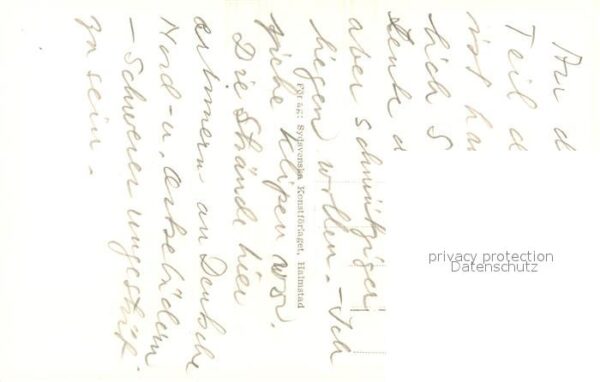 An d
Teil d
ist ha
lich s
Leute d
aber schmutziger
liegen wollen. – Ich
ziehe Klipen vor.
Die Strände hier
erinnern an Deutsche
Nord- u. Ostseebädern
– Schwerer ungestört
zu sein.
Förlag: Sydsvenska Konstförlaget, Halmstad
privacy protection
Datenschutz